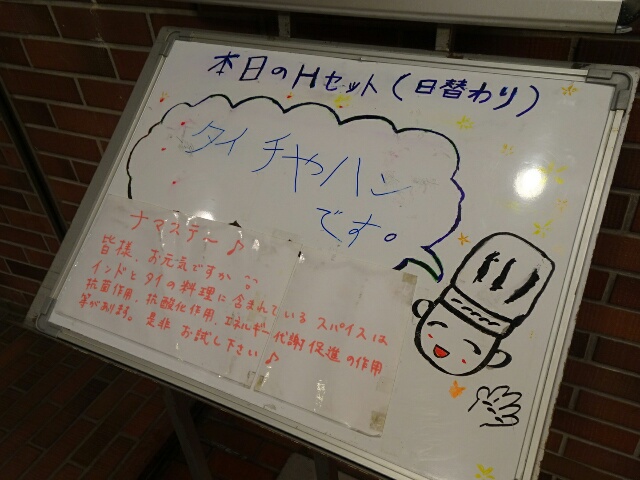 本日のHセット(日替わり)
タイ チャハン
です。
ナマステー♪
皆様、お元気ですか
インドとタイの料理に含まれている スパイスは
抗菌作用、抗酸化作用、エネルギー代謝促進の作用
等があります。是非 お試し下さい♪